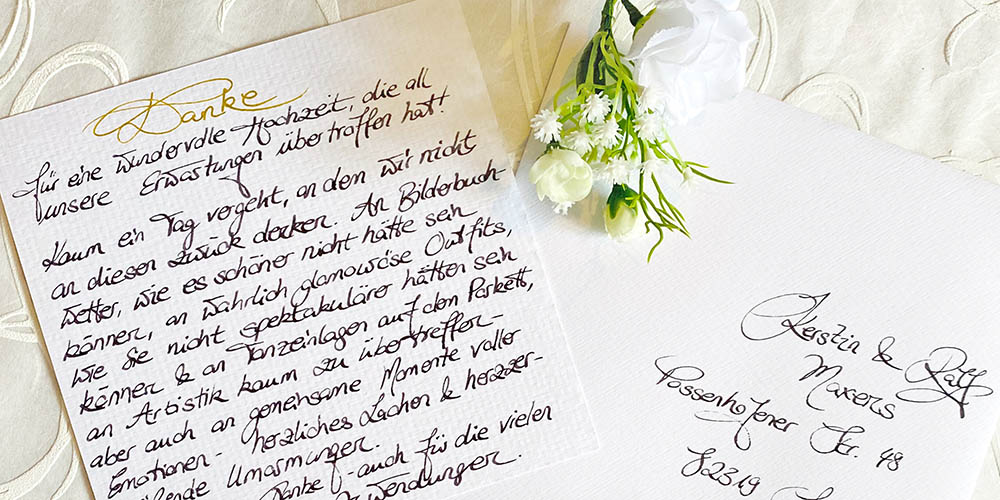 Danke
für eine wundervolle Hochzeit, die all
unsere Erwartungen übertroffen hat!
Kaum ein Tag vergeht, an dem wir nicht
an diesen zurück denken. An Bilderbuch-
wetter, wie es schöner nicht hätte sein
können, an wahrlich glamouröse Outfits,
wie sie nicht spektakulärer hätten sein
können & an Tanzeinlagen auf dem Parkett,
an Artistik kaum zu übertreffen -
aber auch an gemeinsame Momente voller
Emotionen - herzliches Lachen & herzzer-
Umarmungen.
Danke - auch für die vielen
wendungen.
Kerstin & Ralf
Possenhofener Str. 48
82319